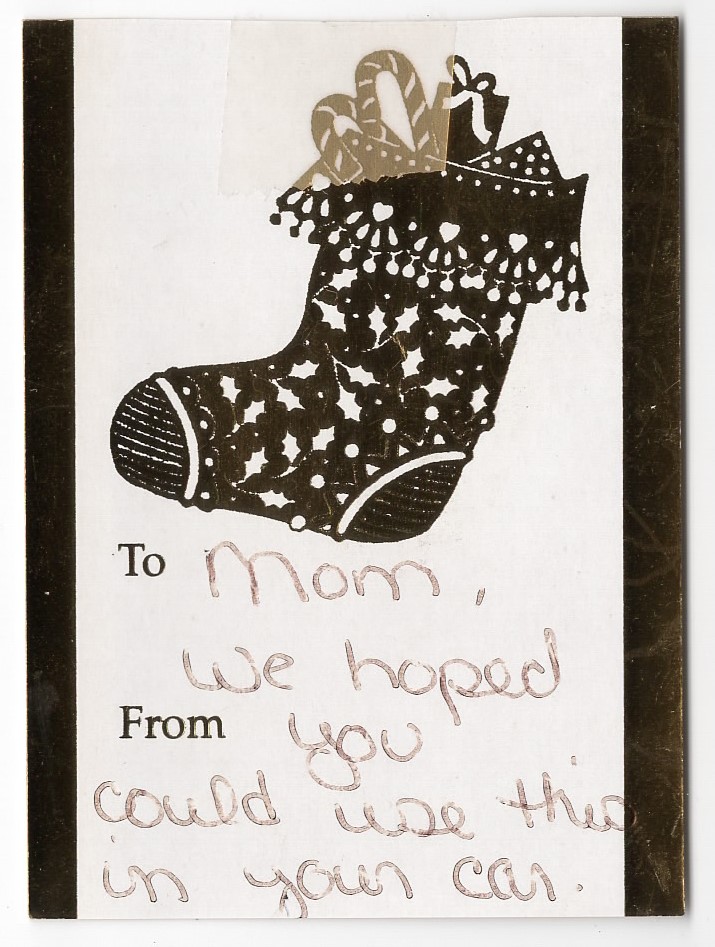 To Mom,
we hoped
From you
could use this
in your car.